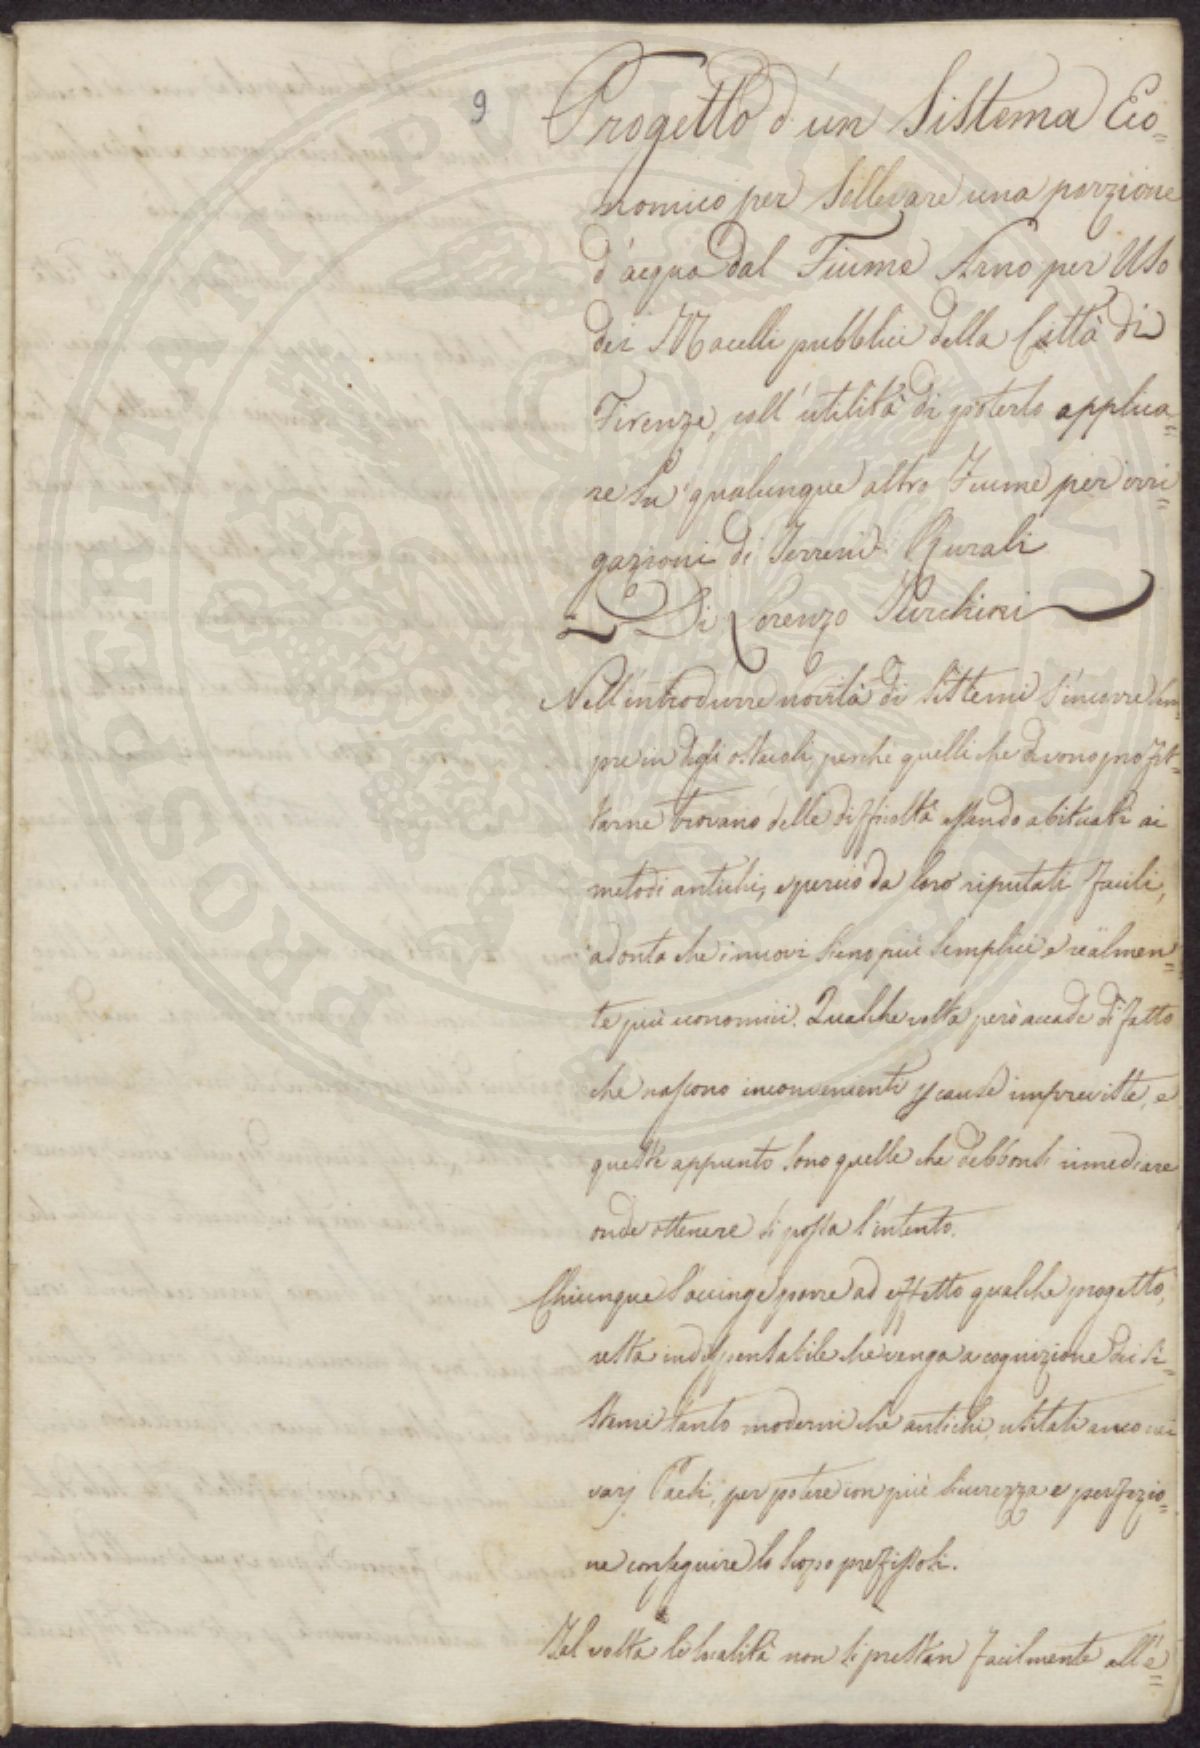 9
Progetto d'un Sistema Eco=
nomico per Sollevare una porzione
d'acqua dal Fiume Arno per Uso
dei Macelli pubblici della Città di
Firenze, coll'utilità di poterlo applica=
re su qualunque altro Fiume per irri=
gazioni di Terreni Rurali
Di Lorenzo Turchini
Nell'introdurre novità di Sistemi s'incorre sem=
pre in degli ostacoli, perche quelli che devono profit=
tarne trovano delle difficoltà essendo abituati ai
metodi antichi, e perciò da loro riputati facili,
ad onta che i nuovi sieno più semplici e realmen=
te più economici. Qualche volta però accade di fatto
che nascono inconvenienti p cause impreviste, e
queste appunto sono quelle che debbonsi rimediare
onde ottenere si possa l'intento.
Chiunque s'accinge porre ad effetto qualche progetto,
resta indispensabile che venga a cognizione dei Si=
stemi tanto moderni che antichi, usitati anco nei
varj Paesi, per potere con più sicurezza e perfezio=
ne conseguire lo scopo prefissosi.
Tal volta le località non si prestan facilmente all'e=
PROSPERITATI PVBLICAE AVGENDAE